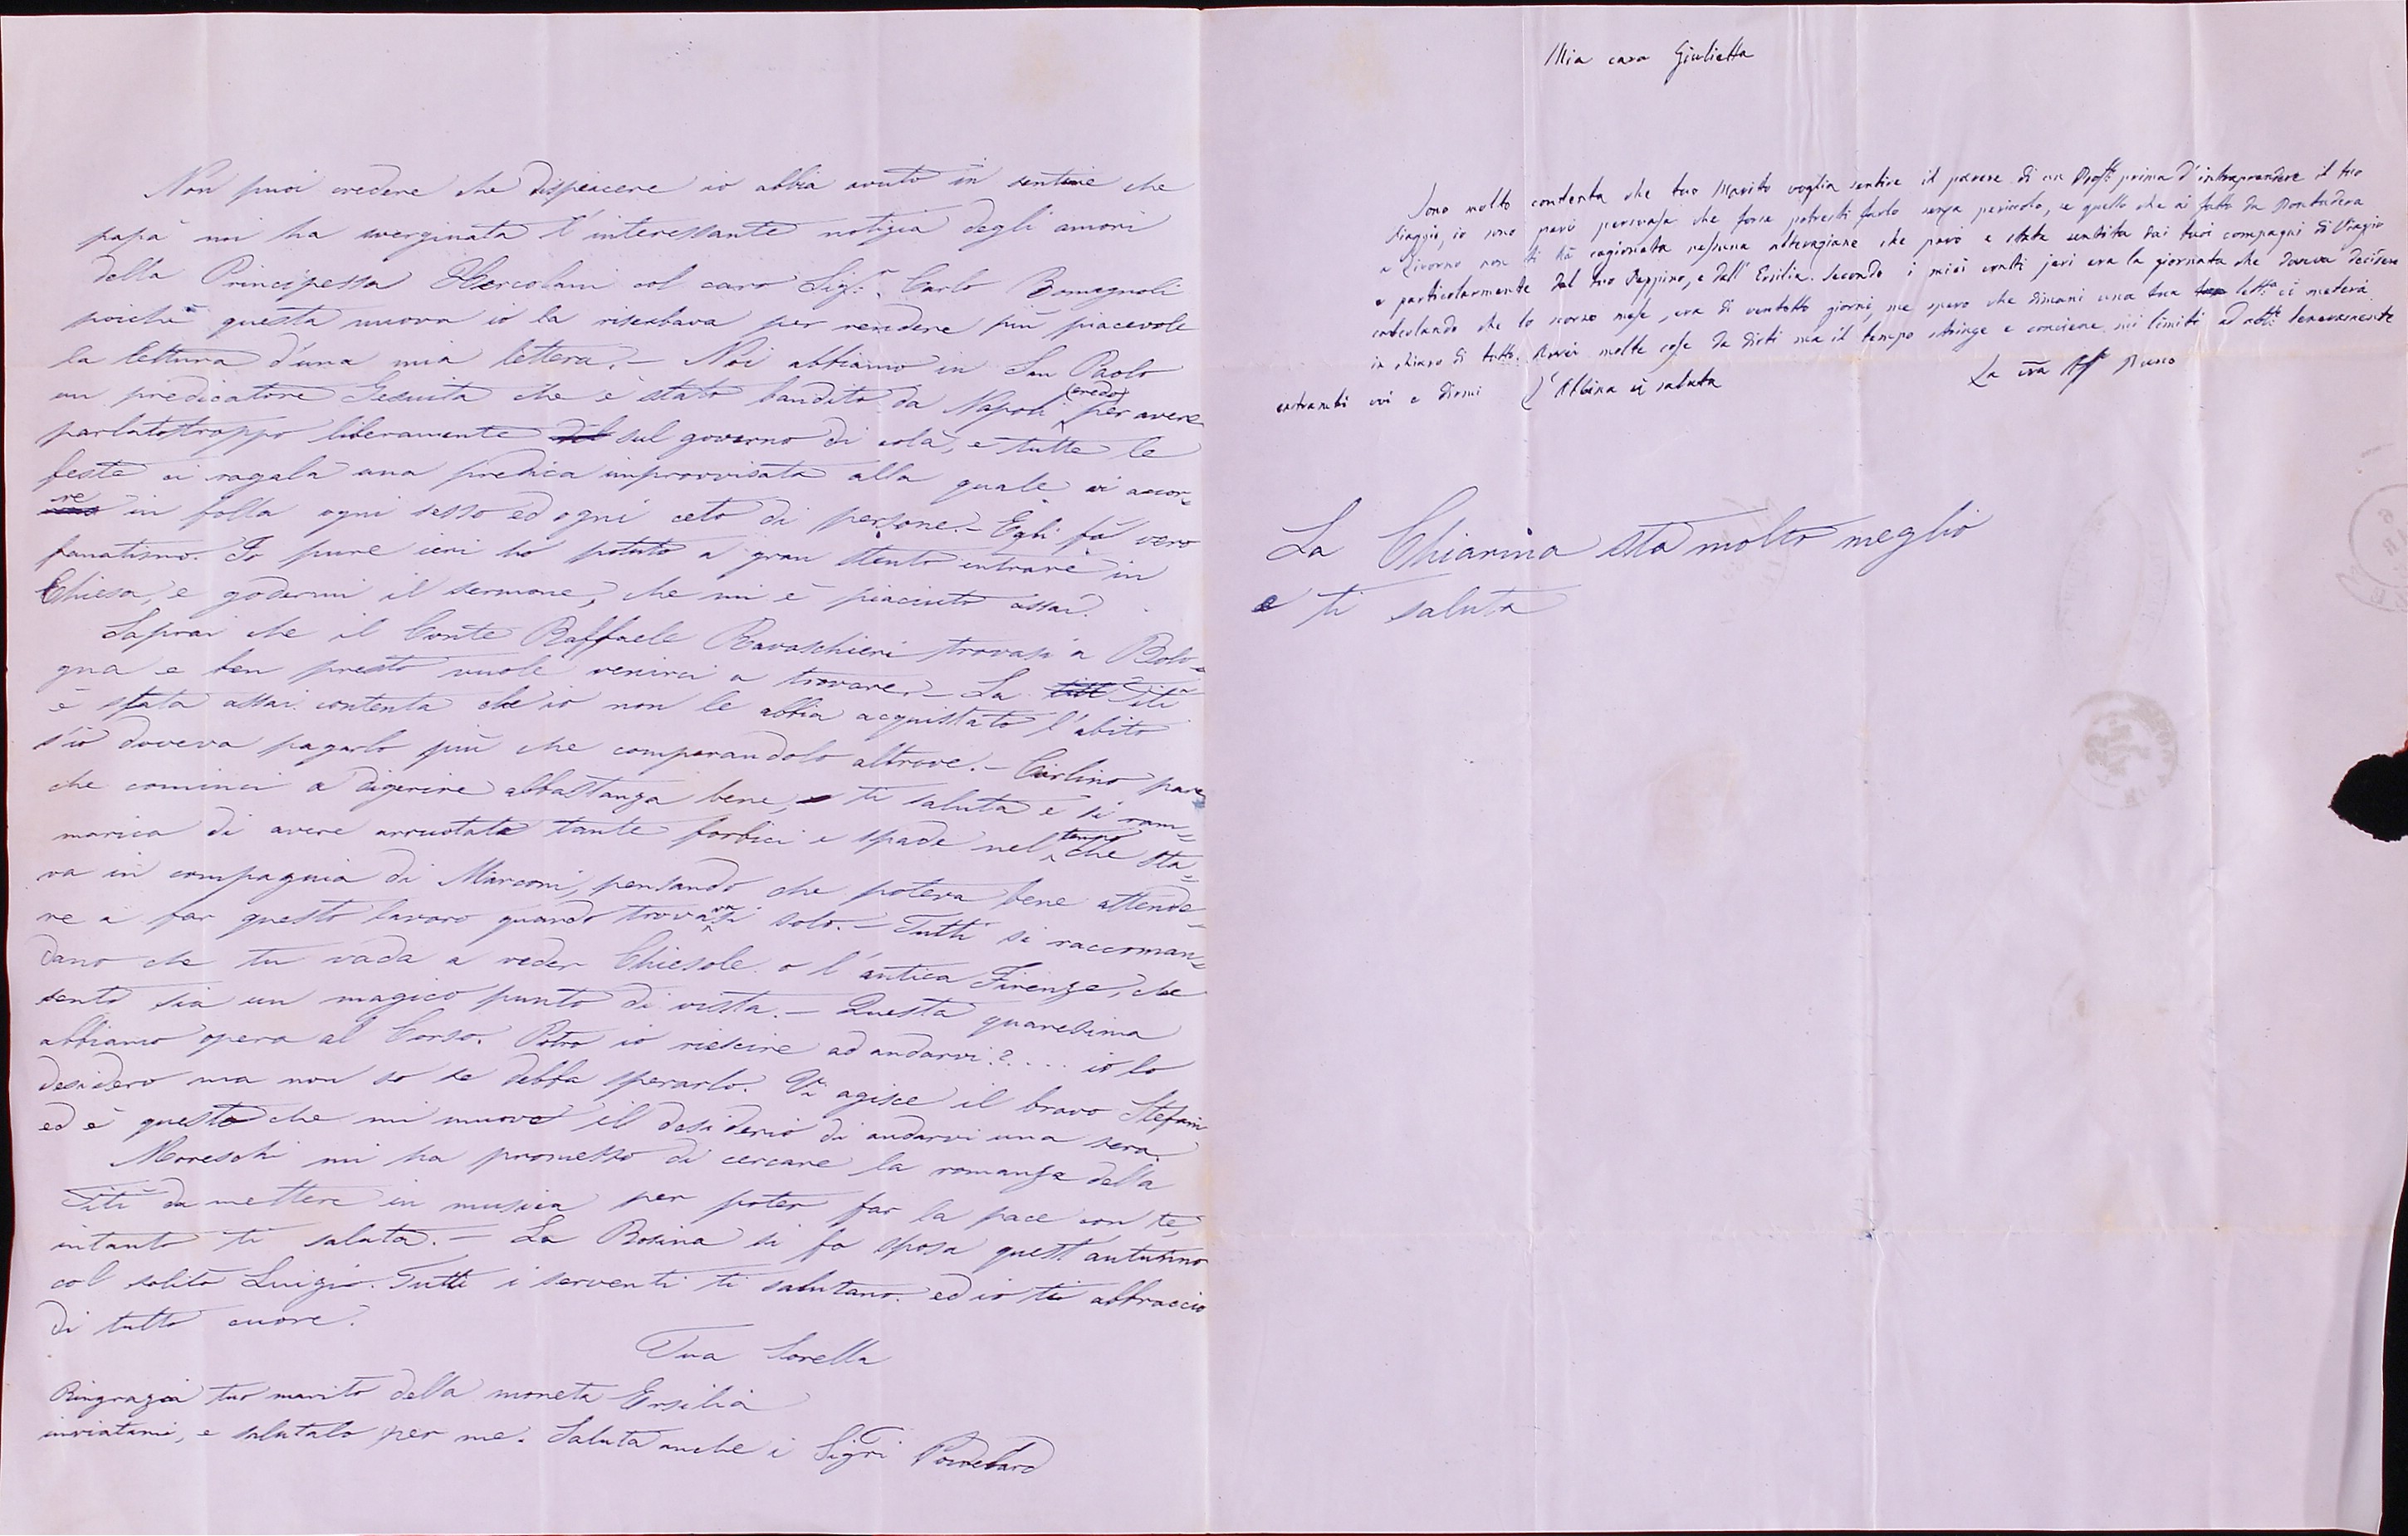 Non puoi credere che dispiacere io abbia avuto in sentire che
papà mi ha sverginata l'interessante notizia degli amori
della Principessa Hercolani col caro Sigr. Carlo Bomagnoli
poichè questa nuova io la riserbava per rendere più piacevole
la lettura d'una mia lettera. – Noi abbiamo in San Paolo
un predicatore Gesuita che è stato bandito da Napoli (credo) per avere
parlato troppo liberamente sul governo di colà, e tutte le
feste ci regala una predica improvvisata alla quale vi accor=
re in folla ogni sesso ed ogni ceto di persone. – Egli fà vero
fanatismo. Io pure ieri ho potuto a gran stento entrare in
Chiesa, e godermi il sermone, che mi è piaciuto assai.
Saprai che il Conte Raffaele Ravaschieri trovasi a Bolo=
gna e ben presto vuole venirci a trovare. – La Titì
è stata assai contenta che io non le abbia acquistato l'abito
s'io doveva pagarlo più che comperandolo altrove. – Carlino pare
che cominci a digerire abbastanza bene, ti saluta e si ram=
marica di avere arruotate tante forbici e spade nel tempo che sta=
va in compagnia di Marconi, pensando che poteva bene attende=
re a far questo lavoro quando trovavasi solo. – Tutti si raccoman=
dano che tu vada a veder Chiesole o l'antica Firenze, che
sento sia un magico punto di vista. – Questa quaresima
abbiamo opera al Corso. Potrò io riescire ad andarvi?.... io lo
desidero ma non so se debba sperarlo. Vi agisce il bravo Stefani
ed è questo che mi muove il desiderio di andarvi una sera.
Moreschi mi ha promesso di cercare la romanza della
Titì da mettere in musica per poter far la pace con te,
intanto ti saluta. – La Rosina si fa sposa quest'autunno
col solito Luigio. Tutti i serventi ti salutano. ed io ti abbraccio
di tutto cuore.
Tua Sorella
Ersilia
Ringrazia tuo marito della moneta
inviatami, e salutalo per me. Saluta anche i Sigri
Mia cara Giulietta
Sono molto contenta che tuo Marito voglia sentire il parere di un Profre prima d'intraprendere il tuo
Viaggio, io sono però persuasa che forse potresti farlo senza pericolo, se quello che ai fatto da Pontadera
a Livorno non ti hà cagionata nessuna alterazione che però e stata sentita dai tuoi compagni di Viagio
e particolarmente dal tuo Peppino, e dall'Ersilia. Secondo i miei conti jeri era la giornata che doveva decidere
calcolando che lo scorso mese, era di ventotto giorni, me spero che dimani una tua letta ci metterà
in chiaro di tutto. Avrei molte cose da dirti ma il tempo stringe e conviene mi limiti ad abbi teneramente
entrambi voi e dirmi L'Albina vi saluta
La Chiarina sta molto meglio
e ti saluta